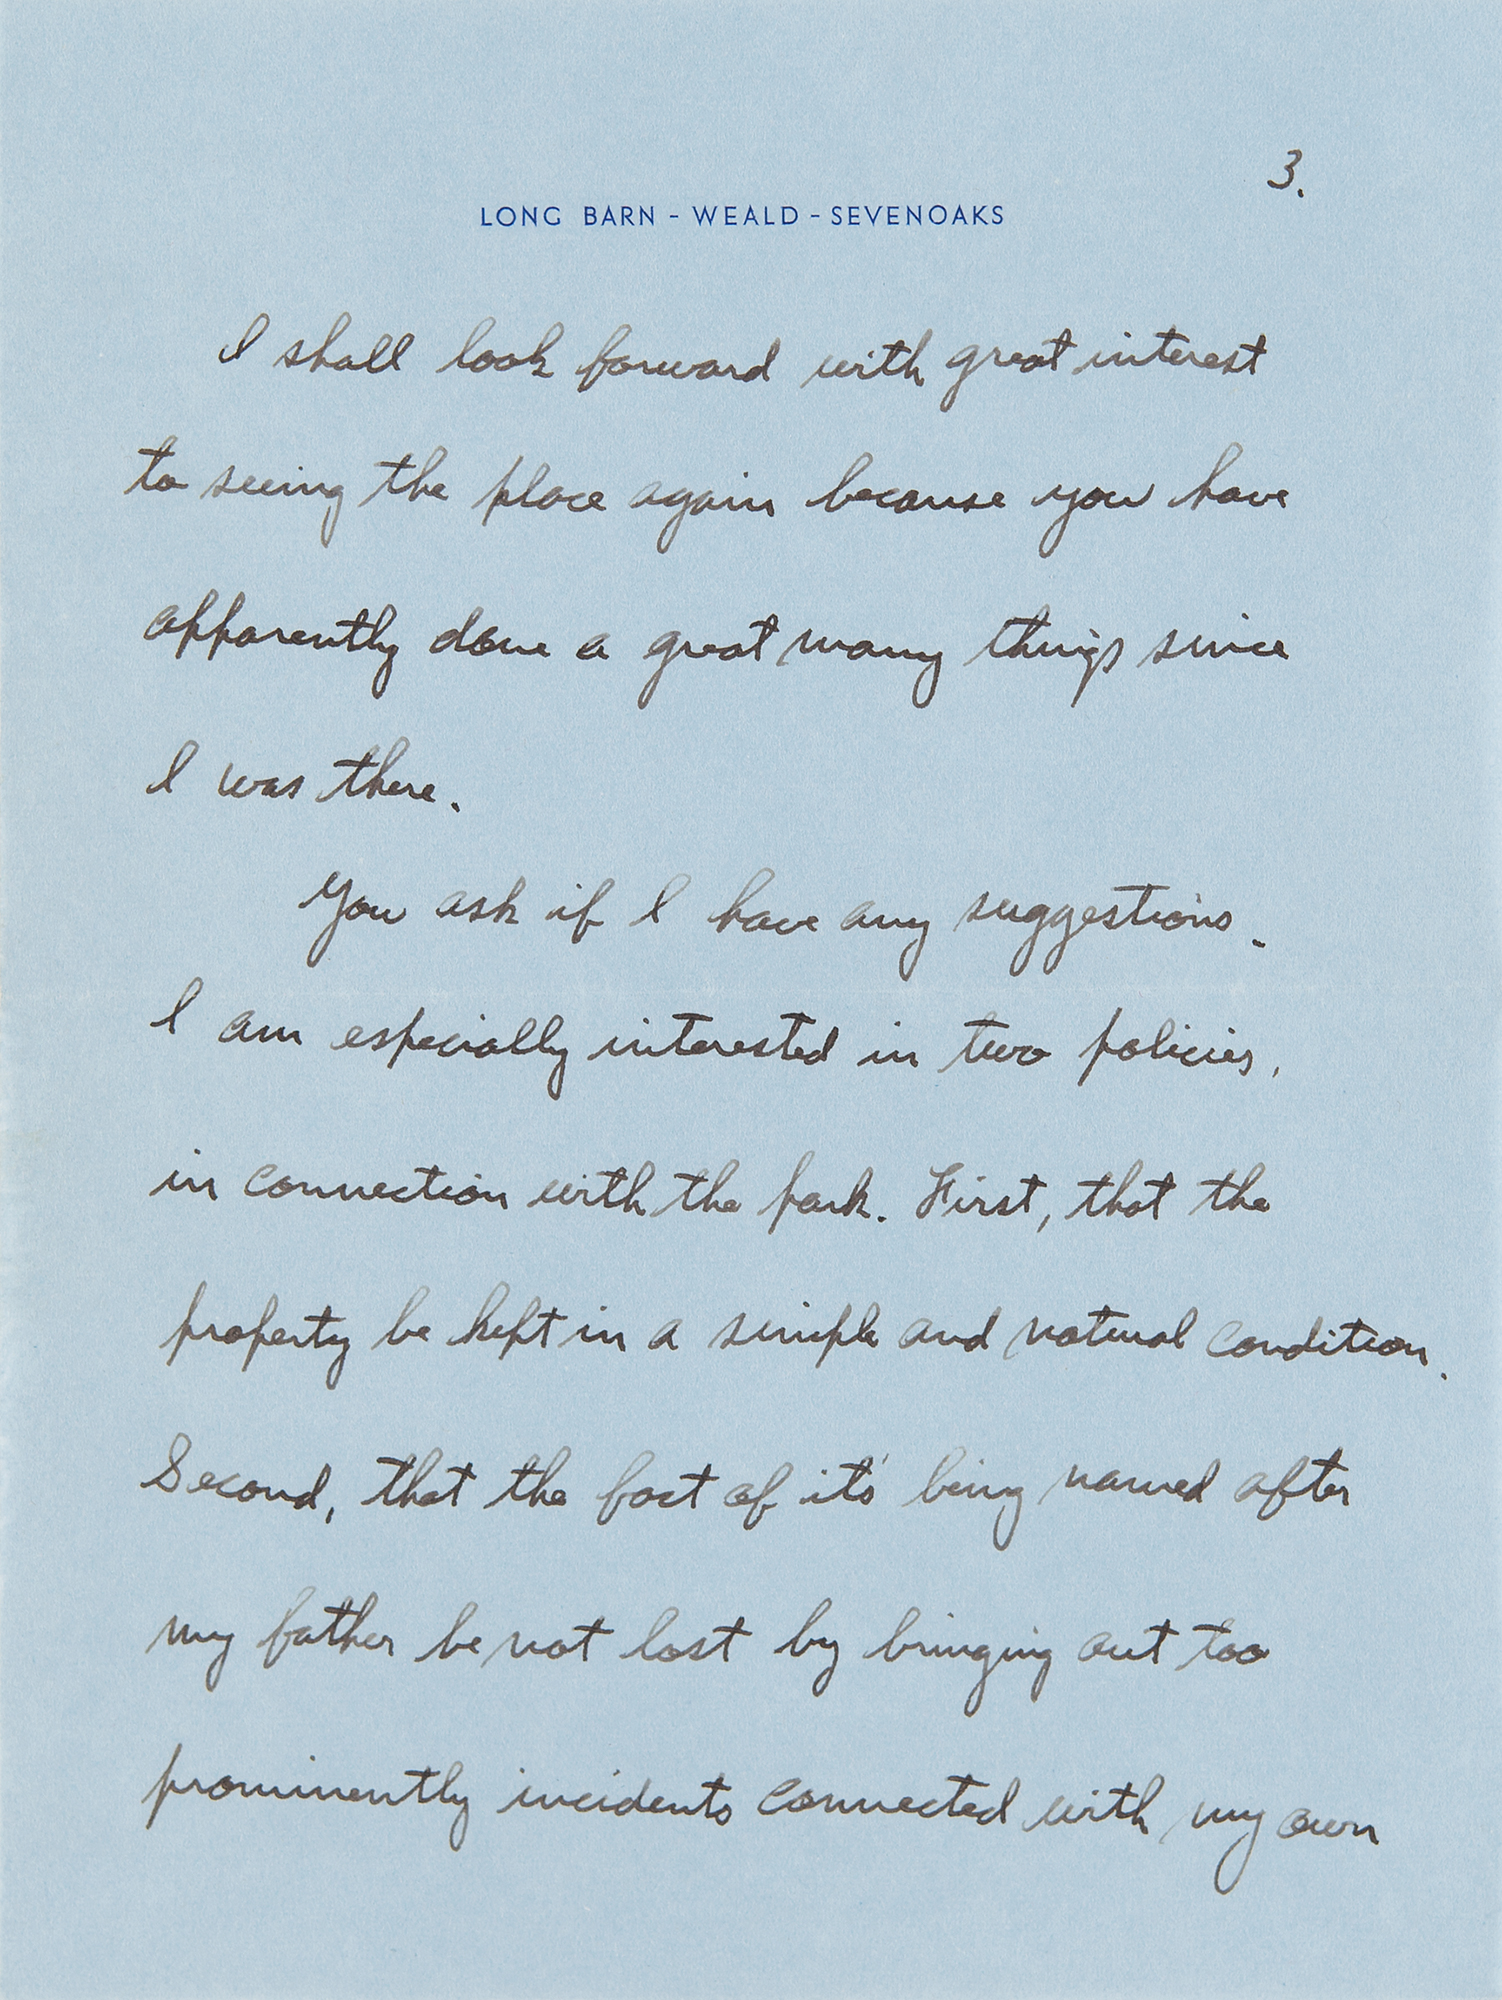 3.
LONG BARN - WEALD - SEVENOAKS
I shall look forward with great interest
to seeing the place again because you have
apparently done a great many things since
I was there.
You ask if I have any suggestions.
I am especially interested in two policies,
in connection with the park. First, that the
property be kept in a simple and natural condition.
Second, that the fact of it's being named after
my father be not lost by bringing out too
prominently incidents connected with my own